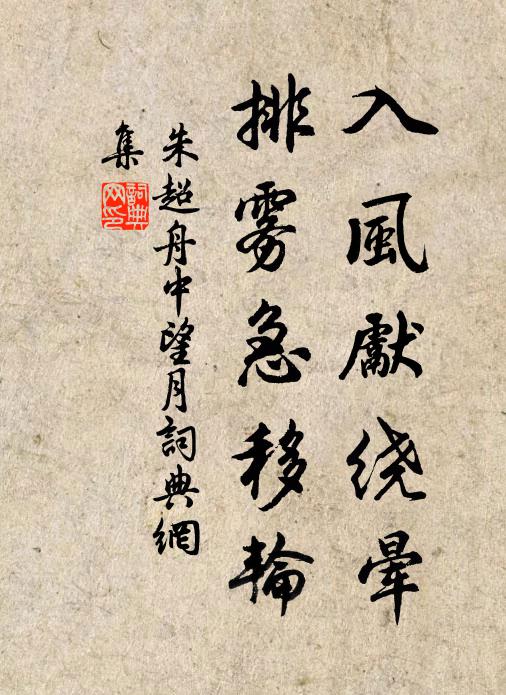 入風厭绕暈
排雾急移輪
朱超舟中望月詞典網
集
詞典
网印